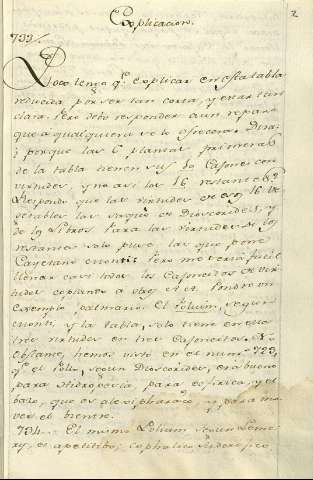 Explicacion. 2
733/.
Poco tengo qe explicar en esta tabla
reducida por ser tan corta, y estar tan
clara. Pero debo responder a un reparo
que a qualquiera se le ofrecerá. Dirá
porque las 6 plantas primeras
de la tabla tienen sus 10 Casones con
virtudes, y no asi las 16 restantes?
Respondo que las virtudes de los 16 Ve
getables las saqué de Dioscorides, y
de los Libros. Para las virtudes de los
restantes solo puse las que pone
Cayetano Monti. Pero me sería facil
llenar casi todos los Casoncitos de vir
tudes copiando a otros
exemplo palmario. El Polium, segun
Monti, y la tabla, solo tiene en ella
tres virtudes en tres Casoncitos. No
obstante, hemos visto en el num. 723,
qe el Polio, segun Dioscorides, era bueno
para Hidropesia para esfirica, y el
bazo, que es alexipharaco, y para mo
ver el bientre.
734. El mismo Polium segun Leme
ry, es apetitibo, cephalico,